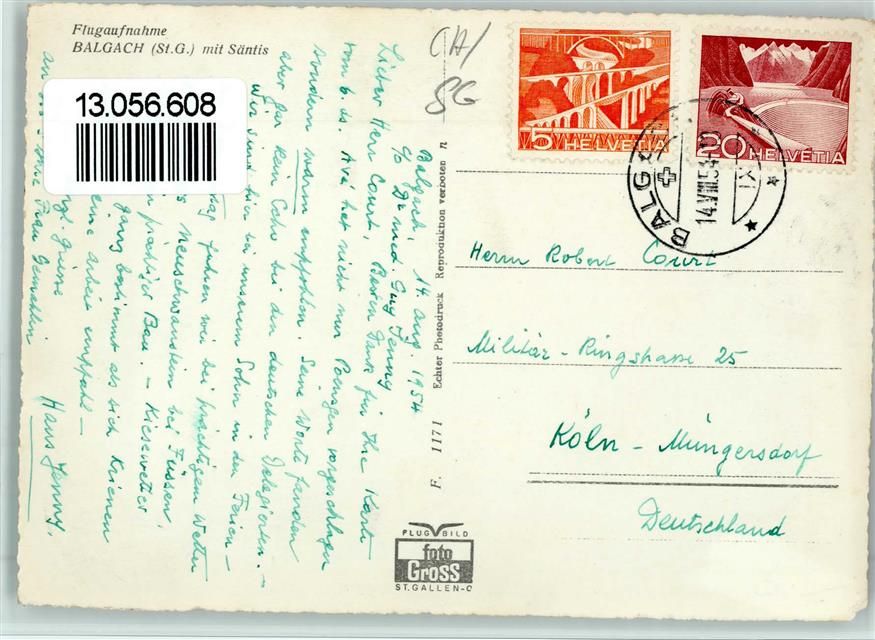 Flugaufnahme
BALGACH (St.G.) mit Säntis
13.056.608
CH/
SG
5 HELVETIA
20 HELVETIA
BALG
14.VIII.54
Balgach, 14. Aug. 1954
c/o Dr med. Guy Jenny
Lieber Herr Court, Besten Dank für Ihre Karte
vom 6. ds. Avé hat nicht nur Poengen vorgeschlagen
sondern warm empfohlen. Seine Worte fanden
aber gar kein Echo bei den deutschen Delegierten. –
Wir sind hier bei unserem Sohn in den Ferien –
fuhren wir bei prächtigem Wetter
Neuschwanstein bei Füssen,
prächtiger Bau. – Kiesewetter
ganz bestimmt als sich Krienen
eine Arbeit empfahl –
Grüsse
Ihre Frau Gemahlin
Hans Jenny.
F. 1171 Echter Photodruck Reproduktion verboten
Herrn Robert Court
Militär-Ringstrasse 25
Köln-Müngersdorf
Deutschland
FLUGBILD
foto
Gross
ST.GALLEN-O